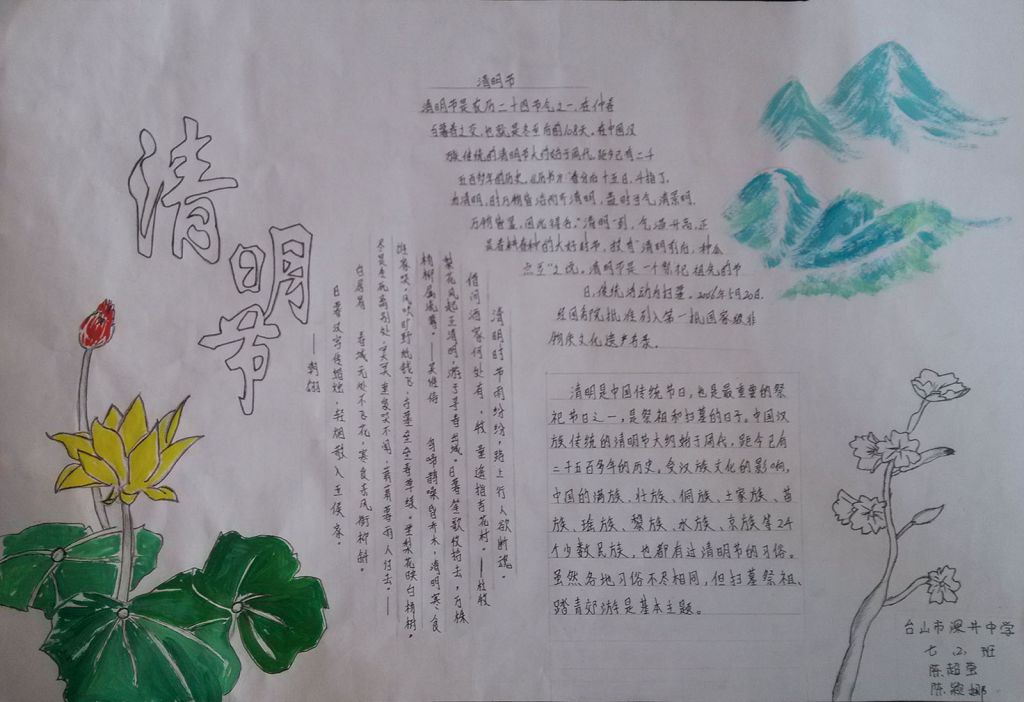 清明节
清明节
清明节是农历二十四节气之一,在仲春
与暮春之交,也就是冬至后的108天。在中国汉
族传统的清明节大约始于周代,距今已有二千
五百多年的历史,《历书》:"春分后十五日,斗指丁,
为清明,时万物皆洁齐而清明,盖时当气清景明,
万物皆显,因此得名。"清明"到,气温升高,正
是春耕春种的大好时节,故有"清明前后,种瓜
点豆"之说。清明节是一个祭祀祖先的节
日,传统活动为扫墓。2006年5月20日,
经国务院批准列入第一批国家级非
物质文化遗产名录。
清明时节雨纷纷,路上行人欲断魂。
借问酒家何处有,牧童遥指杏花村。——杜牧
梨花风起正清明,游子寻春半出城。日暮笙歌收拾去,万株
杨柳属流莺。——吴惟信
乌啼鹊噪昏乔木,清明寒食
谁家哭。风吹旷野纸钱飞,古墓垒垒春草绿。棠梨花映白杨树,
尽是死生离别处。冥冥重泉哭不闻,萧萧暮雨人归去。——
白居易
春城无处不飞花,寒食东风御柳斜。
日暮汉宫传蜡烛,轻烟散入五侯家。
——韩翃
清明是中国传统节日,也是最重要的祭
祀节日之一,是祭祖和扫墓的日子。中国汉
族传统的清明节大约始于周代,距今已有
二千五百多年的历史。受汉族文化的影响,
中国的满族、壮族、侗族、土家族、苗
族、瑶族、黎族、水族、京族等24
个少数民族,也都有过清明节的习俗。
虽然各地习俗不尽相同,但扫墓祭祖、
踏青郊游是基本主题。
台山市深井中学
七(2)班
陈超莹
陈婉娜